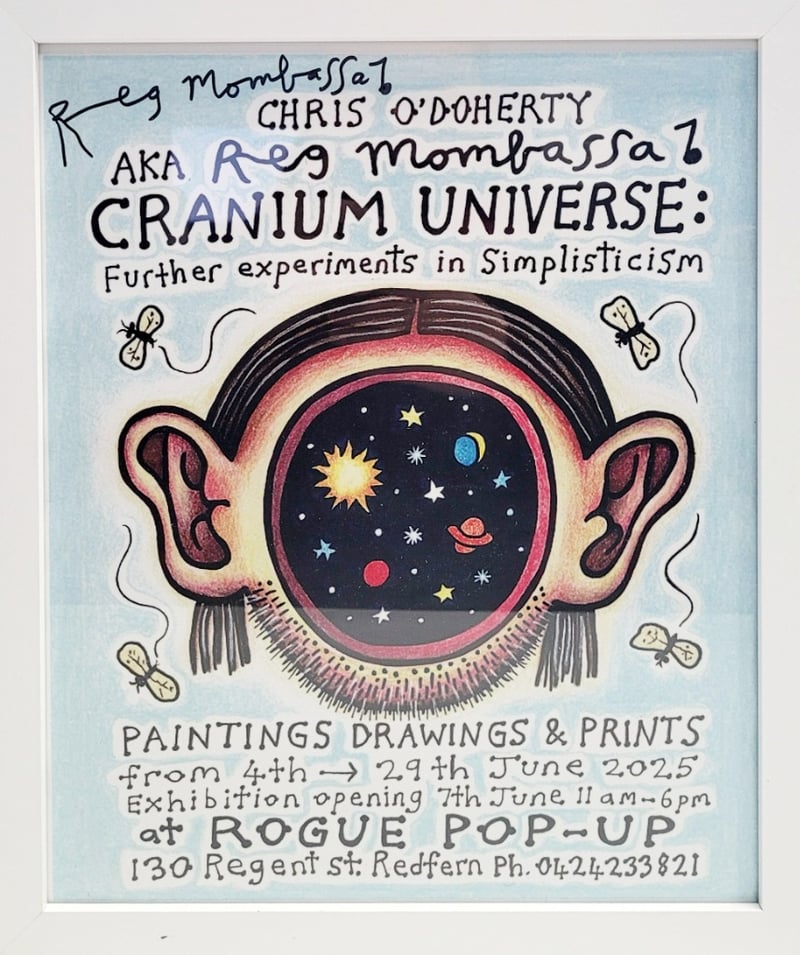 Reg Mombassa
CHRIS O'DOHERTY
AKA Reg Mombassa
CRANIUM UNIVERSE:
Further experiments in Simplisticism
PAINTINGS DRAWINGS & PRINTS
from 4th → 29th June 2025
Exhibition opening 7th June 11am-6pm
at ROGUE POP-UP
130 Regent st. Redfern Ph. 0424233821